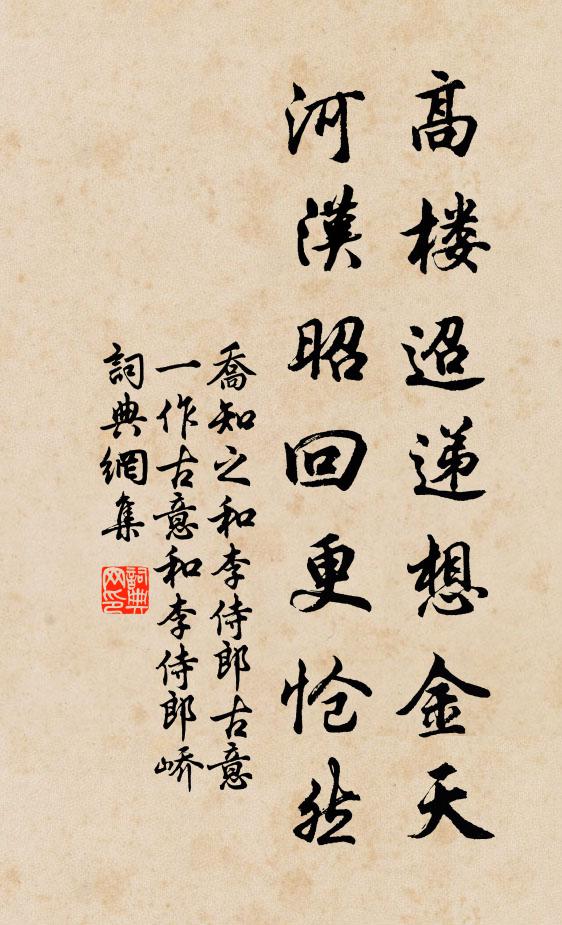 高楼迢递想金天
河漢昭回更怆然
喬知之和李侍郎古意
一作古意和李侍郎嶠
詞典網集
詞典網印